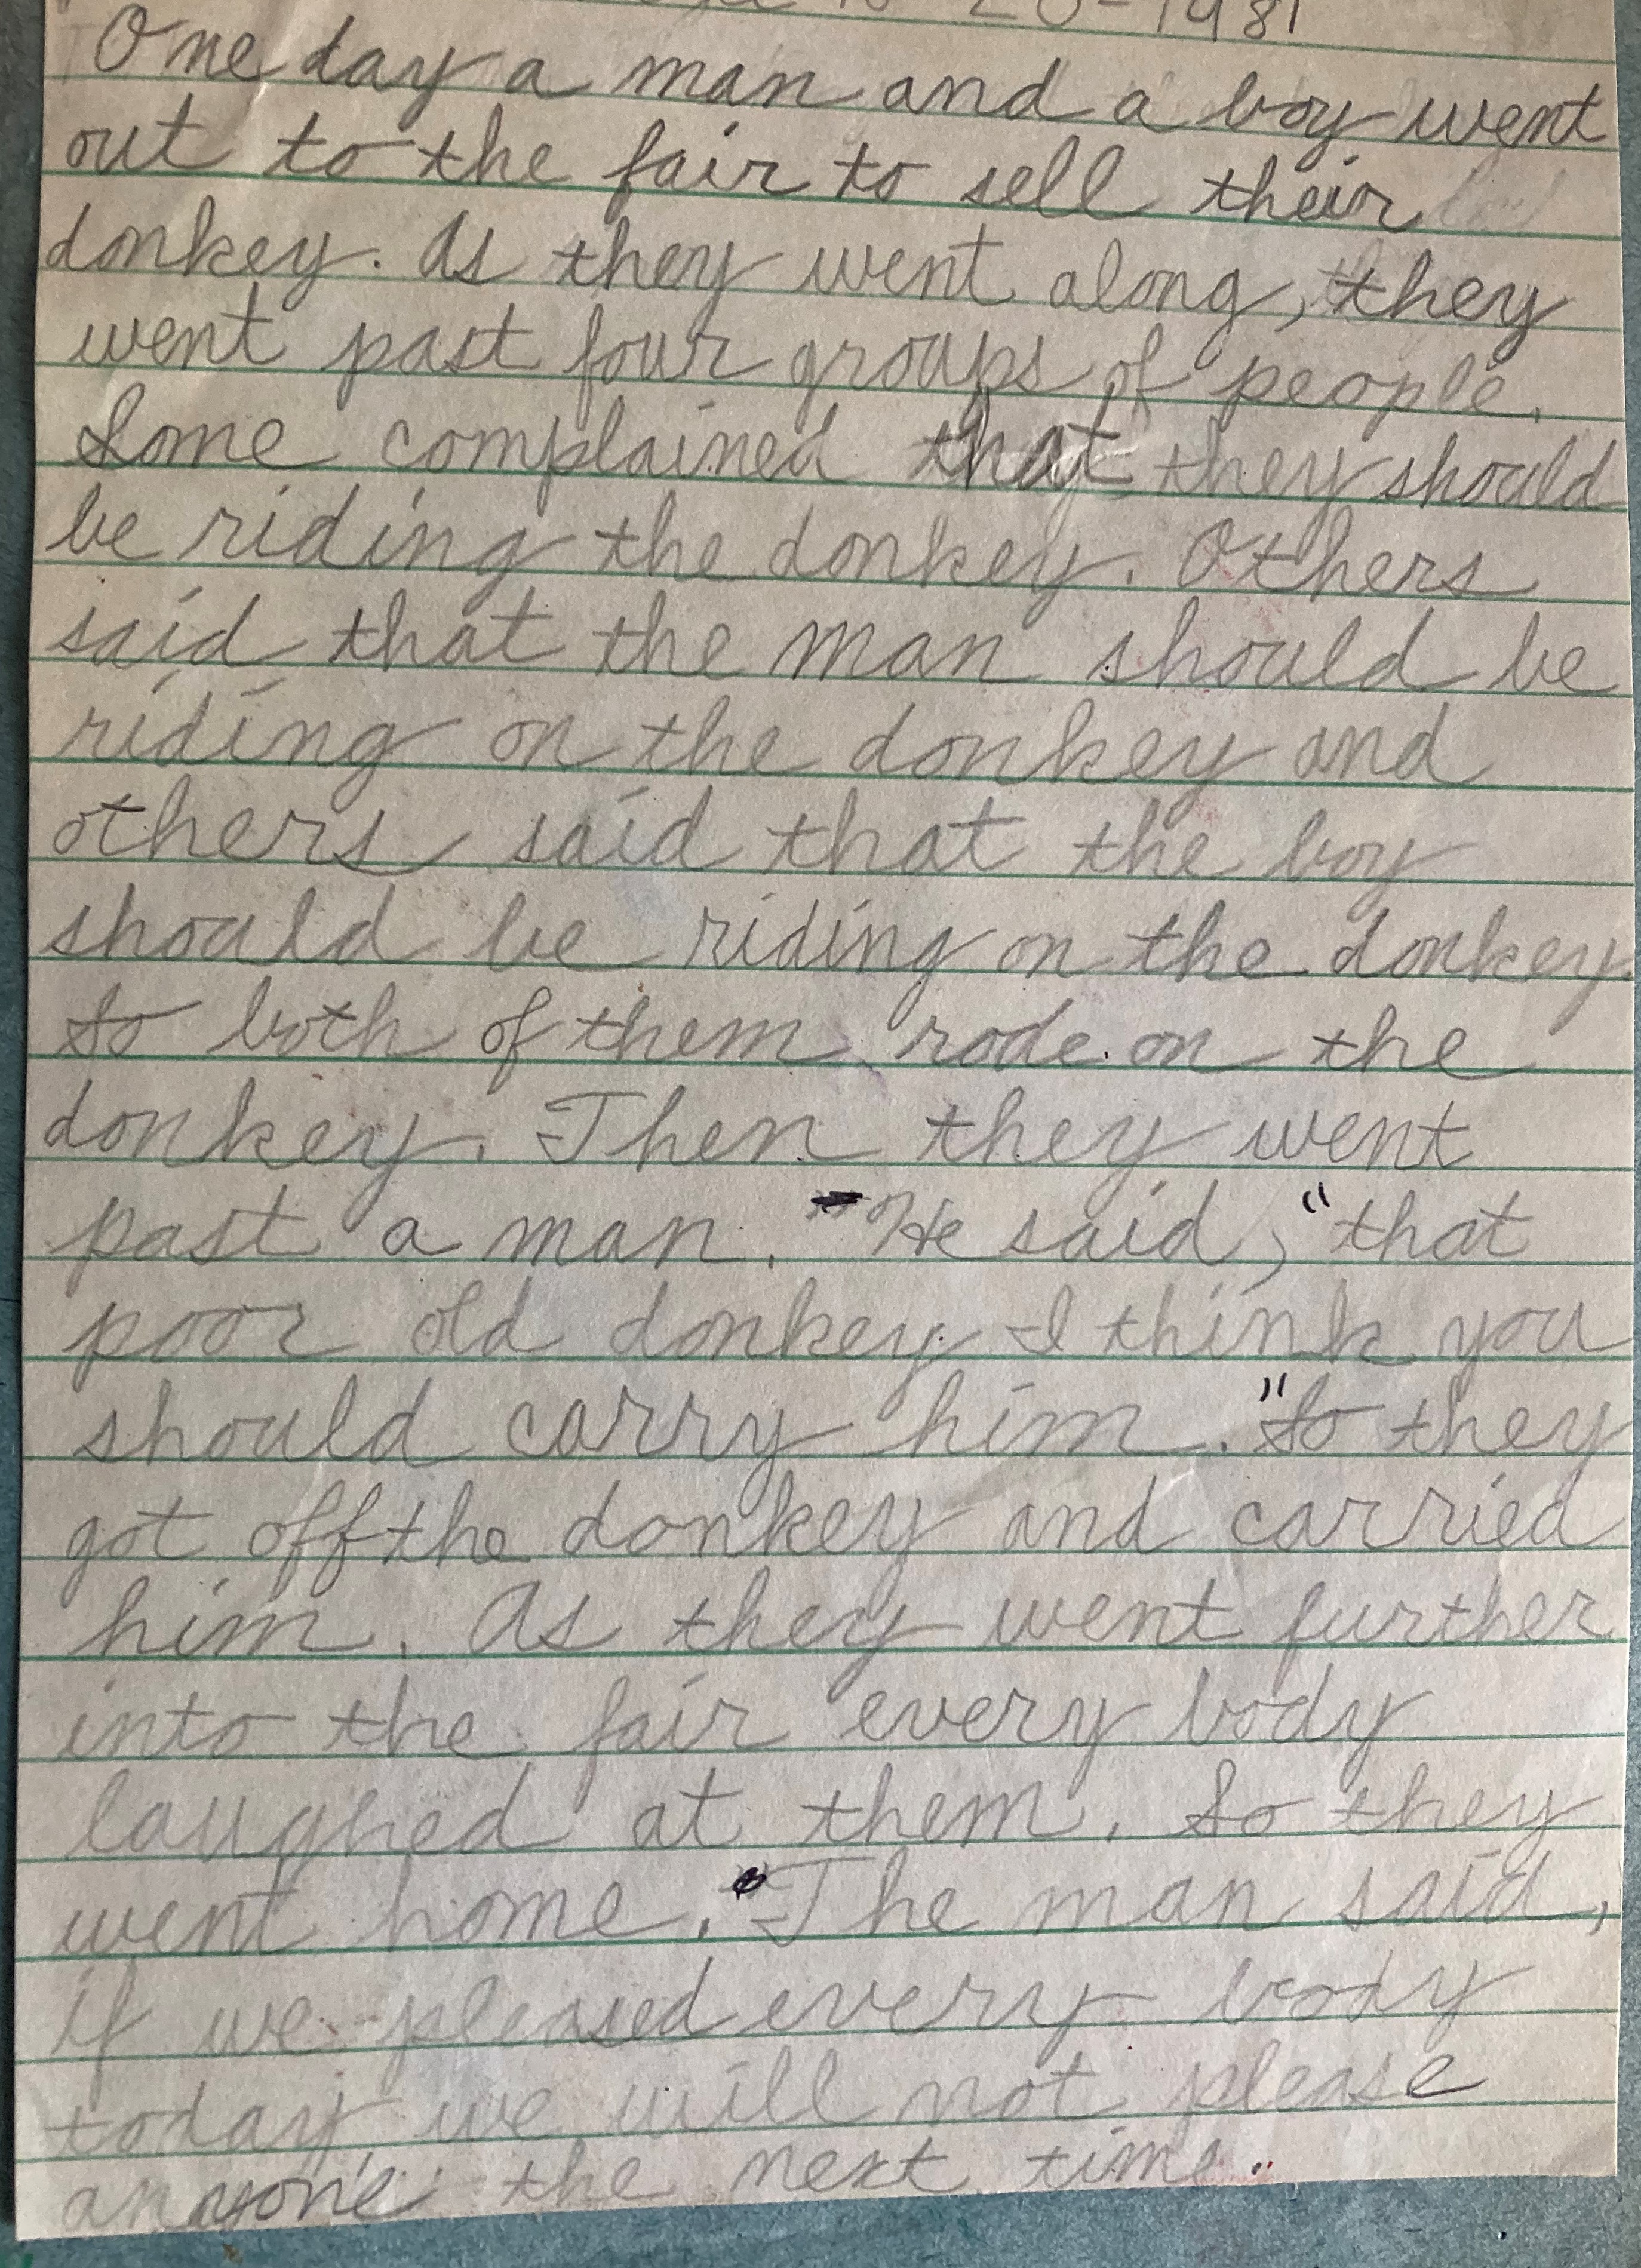 20-1981
One day a man and a boy went
out to the fair to sell their
donkey. As they went along, they
went past four groups of people.
Some complained that they should
be riding the donkey. Others
said that the man should be
riding on the donkey and
others said that the boy
should be riding on the donkey
so both of them rode on the
donkey. Then they went
past a man. He said, "that
poor old donkey I think you
should carry him." So they
got off the donkey and carried
him. As they went further
into the fair every body
laughed at them. So they
went home. The man said,
if we pleased every body
today we will not please
anyone the next time.